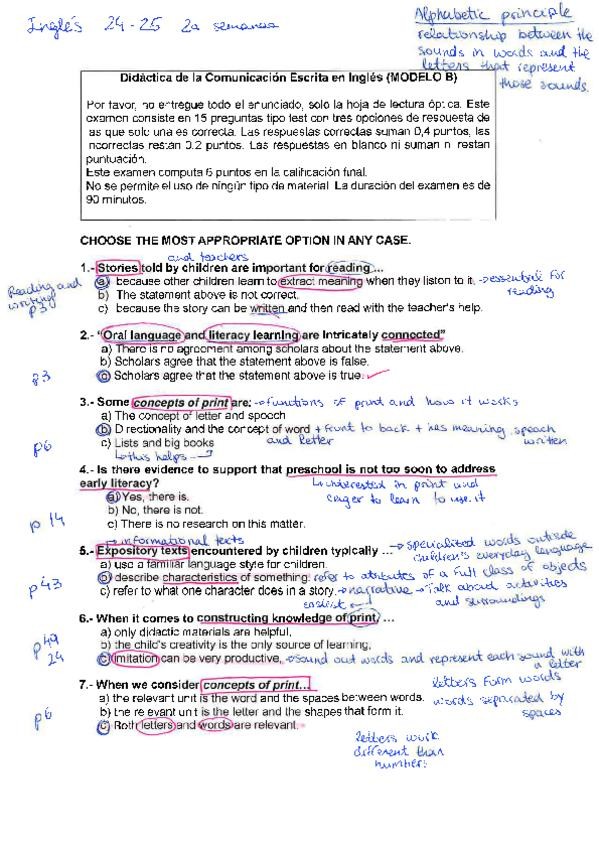 Inglés 24-25 2a semana
Alphabetic principle
relationship between the
sounds in words and the
letters that represent
those sounds.
Didáctica de la Comunicación Escrita en Inglés (MODELO B)
Por favor, no entregue todo el enunciado, solo la hoja de lectura óptica. Este
examen consiste en 15 preguntas tipo test con tres opciones de respuesta de
las que solo una es correcta. Las respuestas correctas suman 0,4 puntos, las
incorrectas restan 0.2 puntos. Las respuestas en blanco ni suman ni restan
puntuación.
Este examen computa 6 puntos en la calificación final.
No se permite el uso de ningún tipo de material. La duración del examen es de
90 minutos.
CHOOSE THE MOST APPROPRIATE OPTION IN ANY CASE.
and teachers
1.- Stories told by children are important for reading ...
a) because other children learn to extract meaning when they listen to it. →essential for
reading
b) The statement above is not correct.
c) because the story can be written and then read with the teacher's help.
Reading and
writing!
2.- "Oral language and literacy learning are intricately connected"
a) There is no agreement among scholars about the statement above.
b) Scholars agree that the statement above is false.
c) Scholars agree that the statement above is true.
p3
3.- Some concepts of print are: →functions of print and how it works
a) The concept of letter and speech
b) Directionality and the concept of word + front to back + has meaning, speech
and letter written
c) Lists and big books
↳this helps
p6
4.- Is there evidence to support that preschool is not too soon to address
early literacy? ↳interested in print and
eager to learn to use it
a) Yes, there is.
b) No, there is not.
c) There is no research on this matter.
p 14
→ informational texts
5.- Expository texts encountered by children typically ... →specialized words outside
children's everyday language
a) use a familiar language style for children.
b) describe characteristics of something. refer to attributes of a full class of objects
c) refer to what one character does in a story. →narrative → Talk about activities
easiest and surroundings
p43
6.- When it comes to constructing knowledge of print, ...
a) only didactic materials are helpful,
b) the child's creativity is the only source of learning,
c) imitation can be very productive, →sound out words and represent each sound with
a letter
p49
24
7.- When we consider concepts of print... letters form words
a) the relevant unit is the word and the spaces between words. words separated by
spaces
b) the relevant unit is the letter and the shapes that form it.
c) Both letters and words are relevant.
p6
letters work
different than
number.